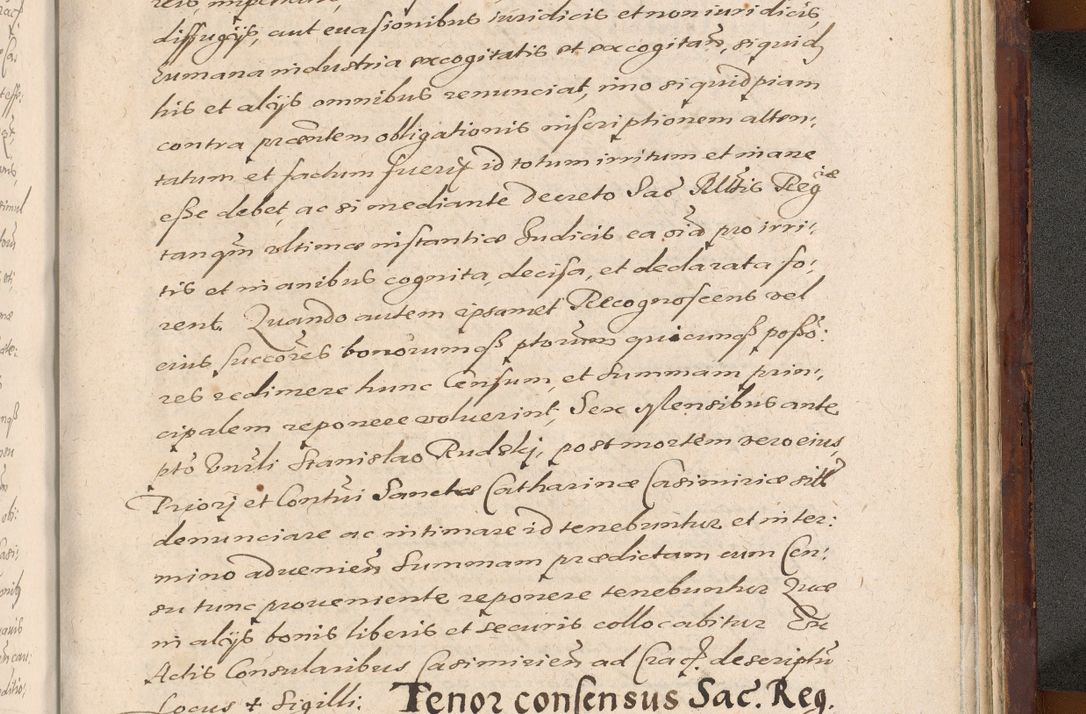 diffugijs, aut euasionibus iuridicis et non iuridicis,
humana industria excogitatis et excogitañ, siquid
his et alijs omnibus renunciat, imo si quidpiam
contra præntem obligationis inscriptionem atten:
tatum et factum fuerit id totum irritum et inane
esse debet, ac si mediante Decreto Sac Mttis Regiæ
tanqm vltimæ instantiæ Iudicis ea oia pro irri:
tis et inanibus cognita, decisa, et declarata fo:
rent. Quando autem ipsamet Recognoscens vel
eius succores bonorumqß ptorum quicunqß posso:
res redimere hunc Censum, et summam prin:
cipalem reponere voluerint, Sex Mensibus ante
pto Vnrli Stanislao Rudski, post mortem vero eius,
Priori et Contui Sanctæ Catharinæ Casimiriæ sitt
denunciare ac intimare id tenebuntur et in ter:
mino advenien Summam prædictam cum Cen:
su tunc proueniente reponere tenebuntur Quæ
in alijs bonis liberis et securis collocabitur Ex
Actis Consularibus Casimirien ad Cracq. descriptu
Locus + Sigilli. Tenor consensus Sac. Reg.